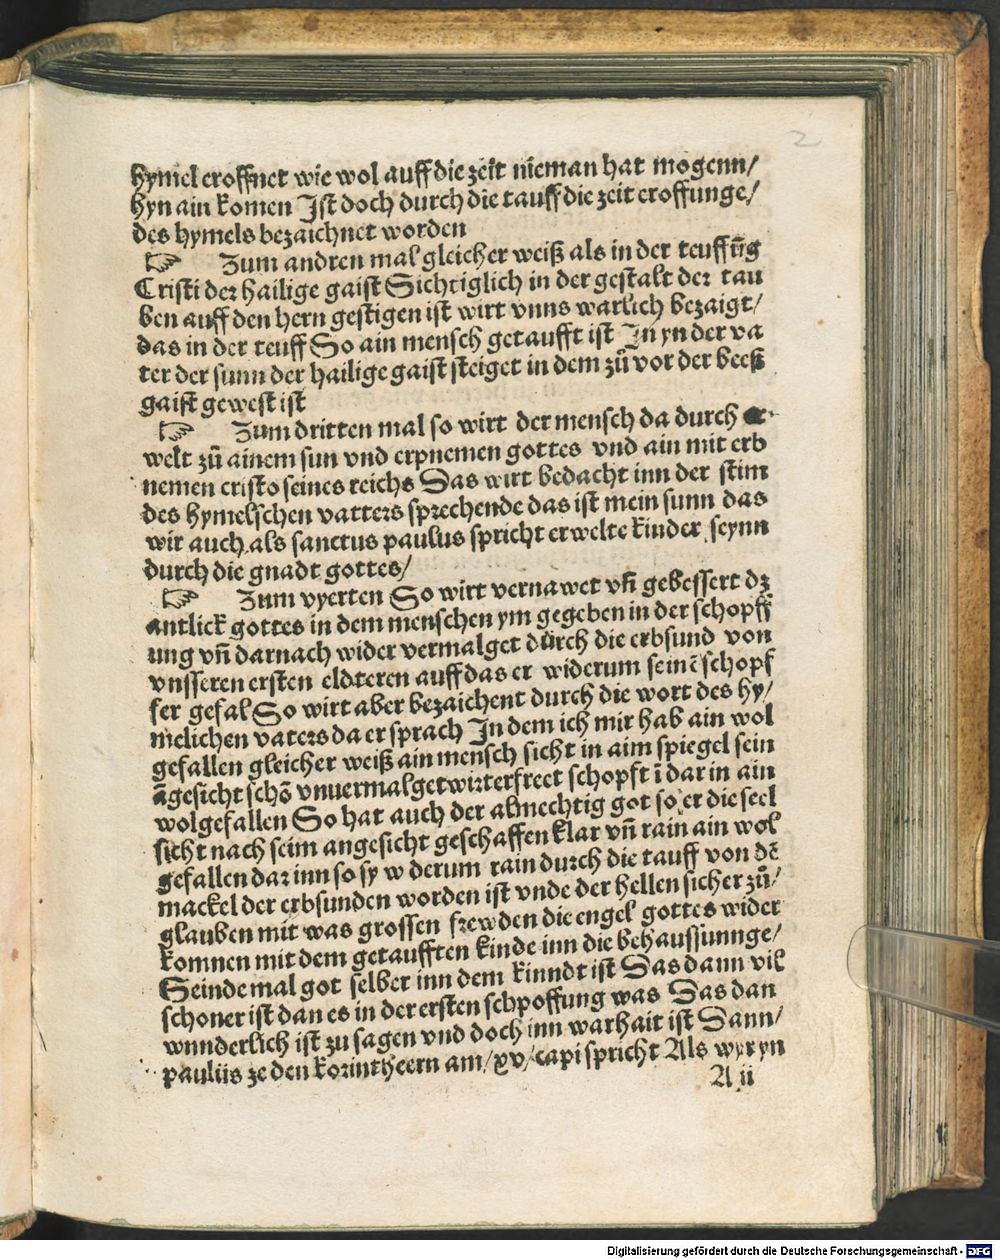 2
hymel eroffnet wie wol auff die zeit nieman hat mogenn/
hyn ain komen Ist doch durch die tauff die zeit eroffunge/
des hymels bezaichnet worden
☞ Zum andren mal gleicher weiß als in der teuffūg
Cristi der hailige gaist Sichtiglich in der gestalt der tau
ben auff den hern gestigen ist wirt vnns warlich bezaigt/
das in der teuff So ain mensch getaufft ist In yn der va
ter der sunn der hailige gaist steiget in dem zů vor der beeß
gaist gewest ist
☞ Zum dritten mal so wirt der mensch da durch er
welt zů ainem sun vnd erpnemen gottes vnd ain mit erb
nemen cristo seines reichs Das wirt bedacht inn der stim
des hymelschen vatters sprechende das ist mein sunn das
wir auch als sanctus paulus spricht erwelte kinder seynn
durch die gnadt gottes/
☞ Zum vyerten So wirt vernawet vñ gebessert dz
antlick gottes in dem menschen ym gegeben in der schopff
ung vñ darnach wider vermalget durch die erbsund von
vnsseren ersten eldteren auff das er widerum seinē schopf
fer gefal So wirt aber bezaichent durch die wort des hy/
melichen vaters da er sprach In dem ich mir hab ain wol
gefallen gleicher weiß ain mensch sicht in aim spiegel sein
āgesicht schō vnuermalget wirt erfreet schopft ī dar in ain
wolgefallen So hat auch der almechtig got so er die seel
sicht nach seim angesicht geschaffen klar vñ rain ain wol
gefallen dar inn so sy w derum rain durch die tauff von dē
mackel der erbsunden worden ist vnde der hellen sicher zů/
glauben mit was grossen frewden die engel gottes wider
komnen mit dem getaufften kinde inn die behaussunnge/
Seindemal got selber inn dem kinndt ist Das dann vil
schoner ist dan es in der ersten schpoffung was Das dan
wnnderlich ist zu sagen vnd doch inn warhait ist Dann/
pauliis ze den korintheern am/xv/capi spricht Als wyr yn
A ii
Digitalisierung gefördert durch die Deutsche Forschungsgemeinschaft - DFG